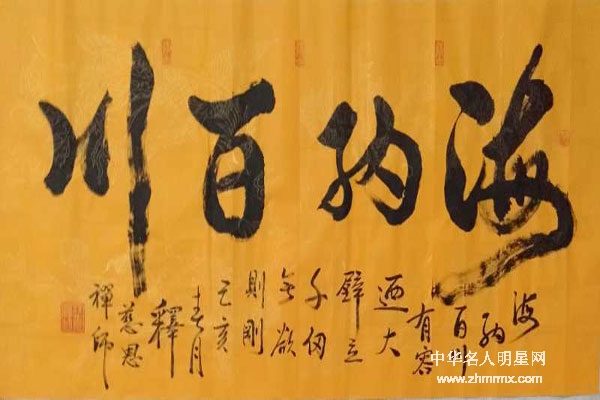 海纳百川
海
纳
百川
有容
迺大
壁立
千仞
无欲
則剛
己亥
春月
釋
慈恩
禪師
中华名人明星网
www.zhmmx.com